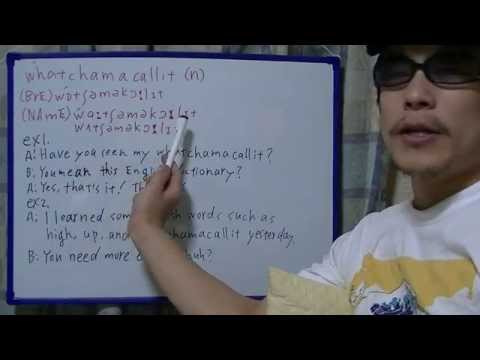 whatchamacallit (n)
(BrE) wɒ́tʃəməkɔːlɪt
(NAmE) wɑ́ːtʃəməkɔːlɪt
wʌtʃəməkɔːlɪ
ex1.
A: Have you seen my whatchamacallit?
B: You mean this Eng tionary?
A: Yes, that's it! Th
ex2.
A: I learned som sh words such as
high, up, and chamacallit yesterday.
B: You need more huh?